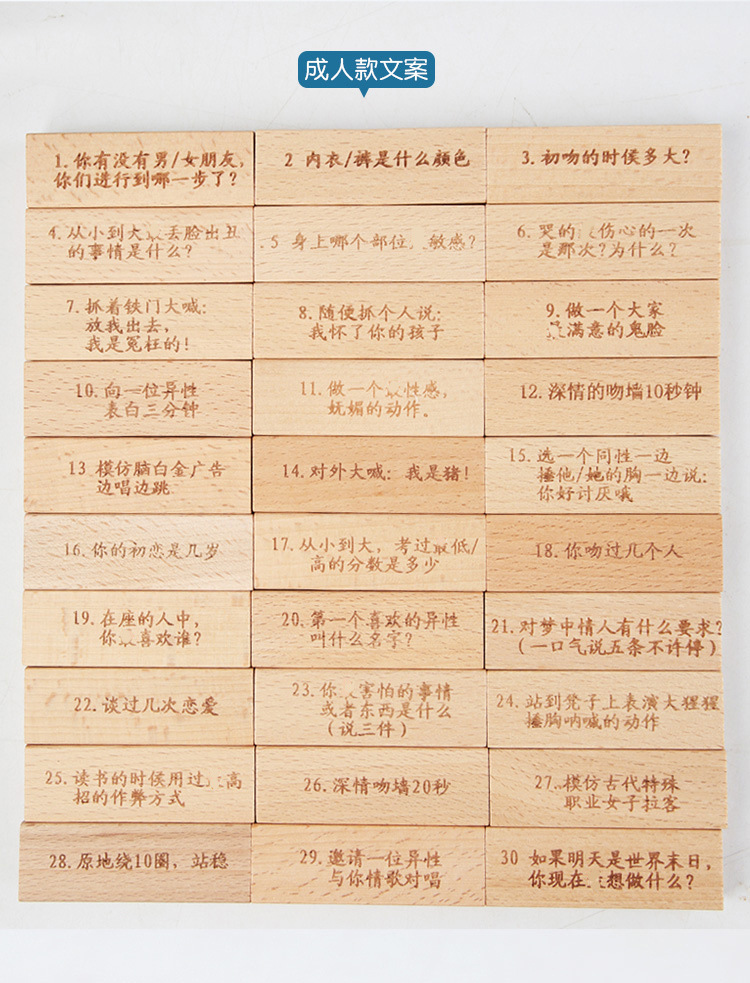 成人款文案
1. 你有没有男/女朋友,
你们进行到哪一步了?
2 内衣/裤是什么颜色
3. 初吻的时候多大?
4. 从小到大 丢脸出丑
的事情是什么?
.5 身上哪个部位 敏感?
6. 哭的 伤心的一次
是那次?为什么?
7. 抓着铁门大喊:
放我出去,
我是冤枉的!
8. 随便抓个人说:
我怀了你的孩子
9. 做一个大家
最满意的鬼脸
10. 向一位异性
表白三分钟
11. 做一个 性感,
妩媚的动作。
12. 深情的吻墙10秒钟
13 模仿脑白金广告
边唱边跳
14. 对外大喊: 我是猪!
15. 选一个同性一边
捶他/她的胸一边说:
你好讨厌哦
16. 你的初恋是几岁
17. 从小到大, 考过最低/
高的分数是多少
18. 你吻过几个人
19. 在座的人中,
你最喜欢谁?
20. 第一个喜欢的异性
叫什么名字?
21. 对梦中情人有什么要求?
(一口气说五条不许停)
22. 谈过几次恋爱
23. 你 害怕的事情
或者东西是什么
(说三件)
24. 站到凳子上表演大猩猩
捶胸呐喊的动作
25. 读书的时候用过 高
招的作弊方式
26. 深情吻墙20秒
27. 模仿古代特殊
职业女子拉客
28. 原地绕10圈, 站稳
29. 邀请一位异性
与你情歌对唱
30 如果明天是世界末日,
你现在 想做什么?